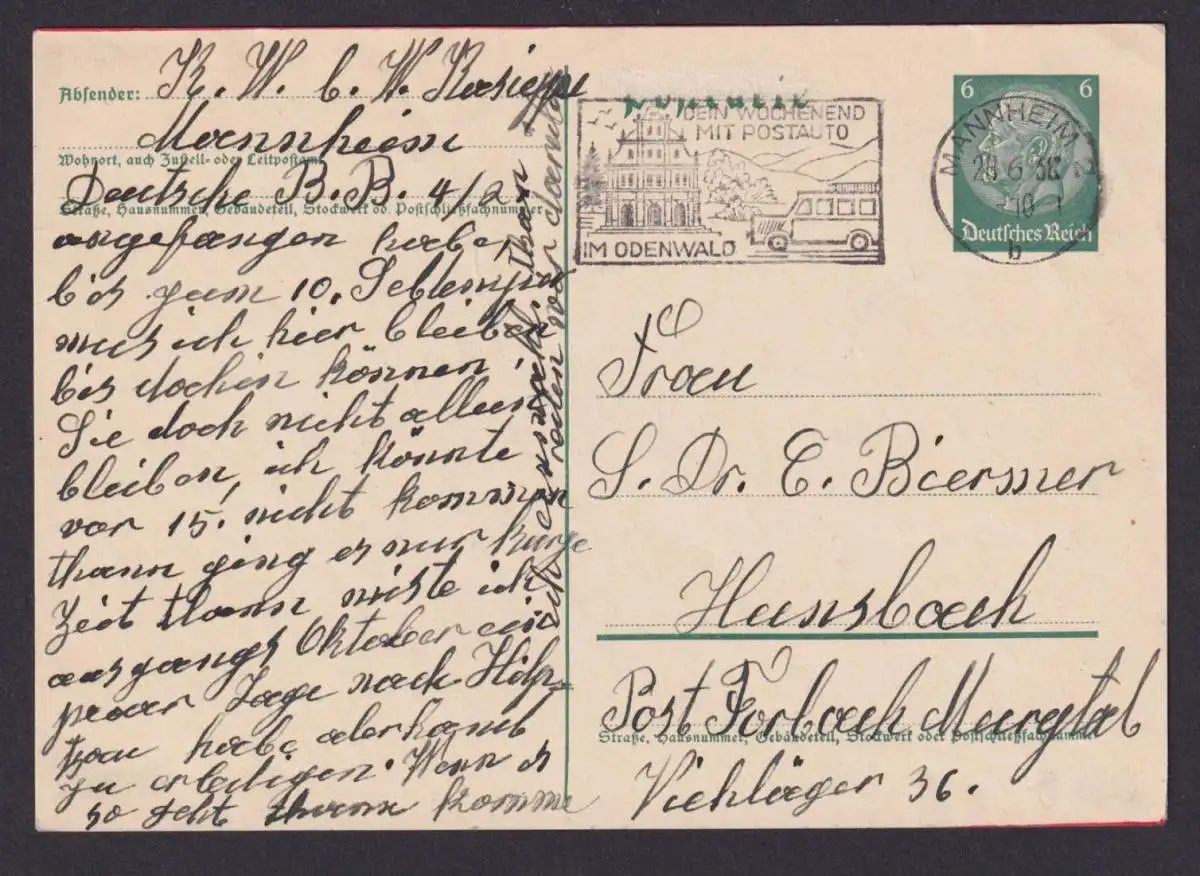 Absender: K. W. C. W. Kasiepe
Mannheim
Wohnort, auch Zustell- oder Leitpostamt
Deutsche B. B. 4/2
Straße, Hausnummer, Gebäudeteil, Stockwert od. Postschließfachnummer
angefangen habe,
bis zum 10. Sebtember
mus ich hier bleiben
bis dochen können
Sie doch nicht allein
bleiben, ich könnte
vor 15. nicht kommen
thann ging es nur kurze
Zeit thann miste ich
ausgangs Oktober ein
paar Tage nach
habe
zu erledigen. Wenn es
so geht thann komme
ich
Postkarte
DEIN WOCHENEND
MIT POSTAUTO
IM ODENWALD
MANNHEIM 2
28.6.38
10
b
6 6
Deutsches Reich
Frau
S. Dr. E. Biermer
Hunsbach
Post Forbach Murgtal
Straße, Hausnummer, Gebäudeteil, Stockwert oder Postschließfachnummer
Viehläger 36.